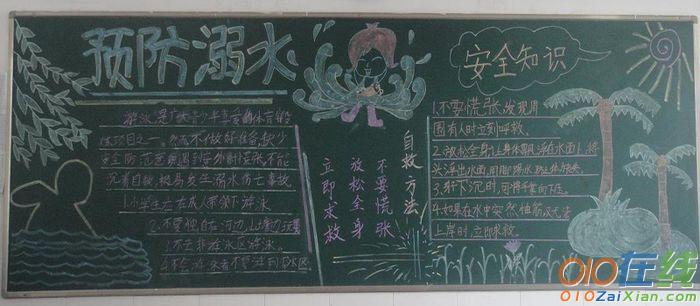 预防溺水
游泳是广大青少年喜爱的体育锻
炼项目之一。然而不做好准备、缺少
安全防范意识遇到意外时慌张、不能
沉着自救，极易发生溺水伤亡事故。
1.小学生应在成人带领下游泳
2.不要独自在河边、山塘边玩耍
3.不去非游泳区游泳。
4.不会游泳者不要游到深水区
自救方法
不要慌张
放松全身
立即求救
安全知识
1.不要慌张,发现周
围有人时立刻呼救。
2.放松全身,让身体飘浮在水面上,将
头浮出水面,用脚踢水
3.身体下沉时,可将手掌向下压。
4.如果在水中突然抽筋,又无法
上岸时,立即求救。
010在线
010ZaiXian.com